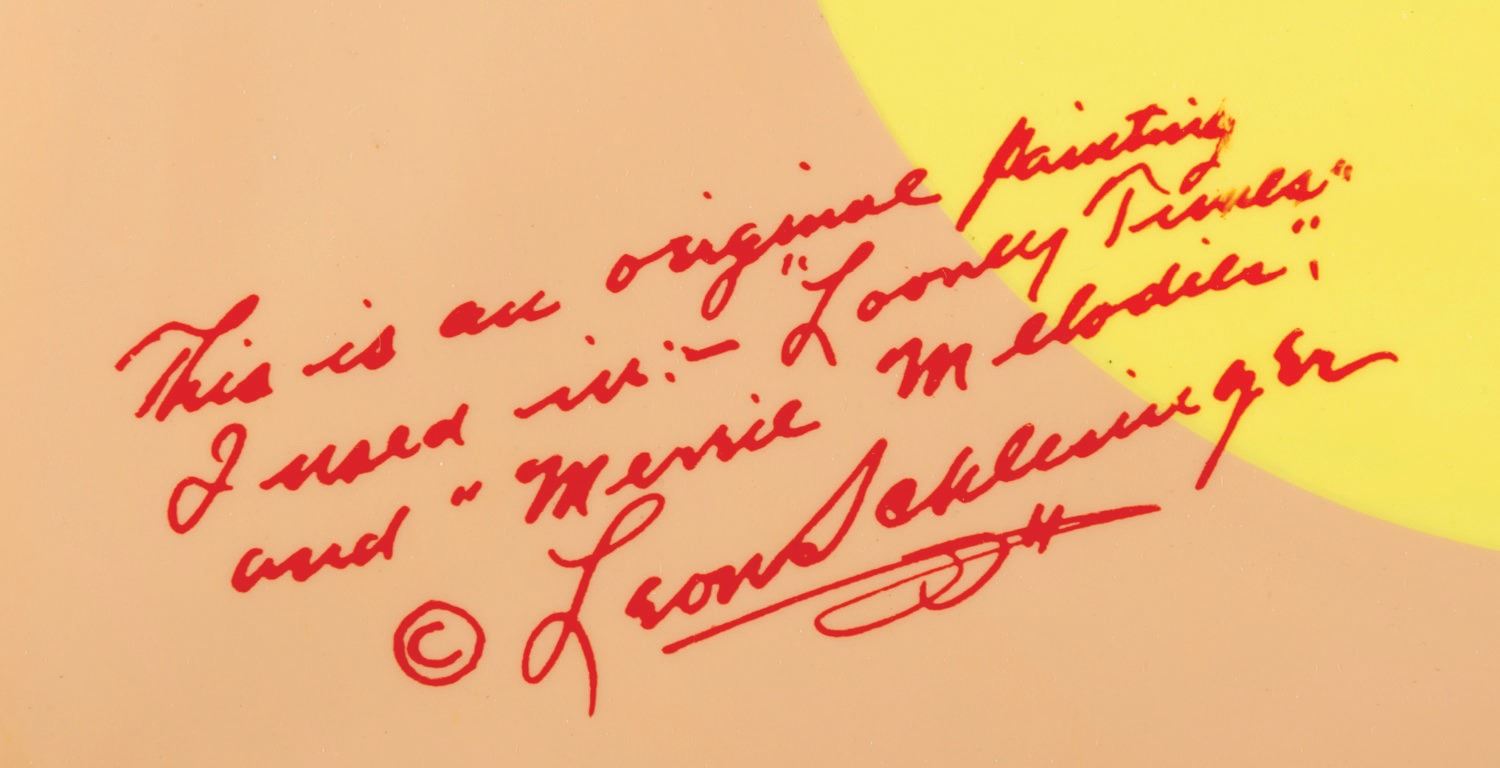 This is an original painting
I used in:- "Looney Tunes"
and "Merrie Melodies".
© Leon Schlesinger